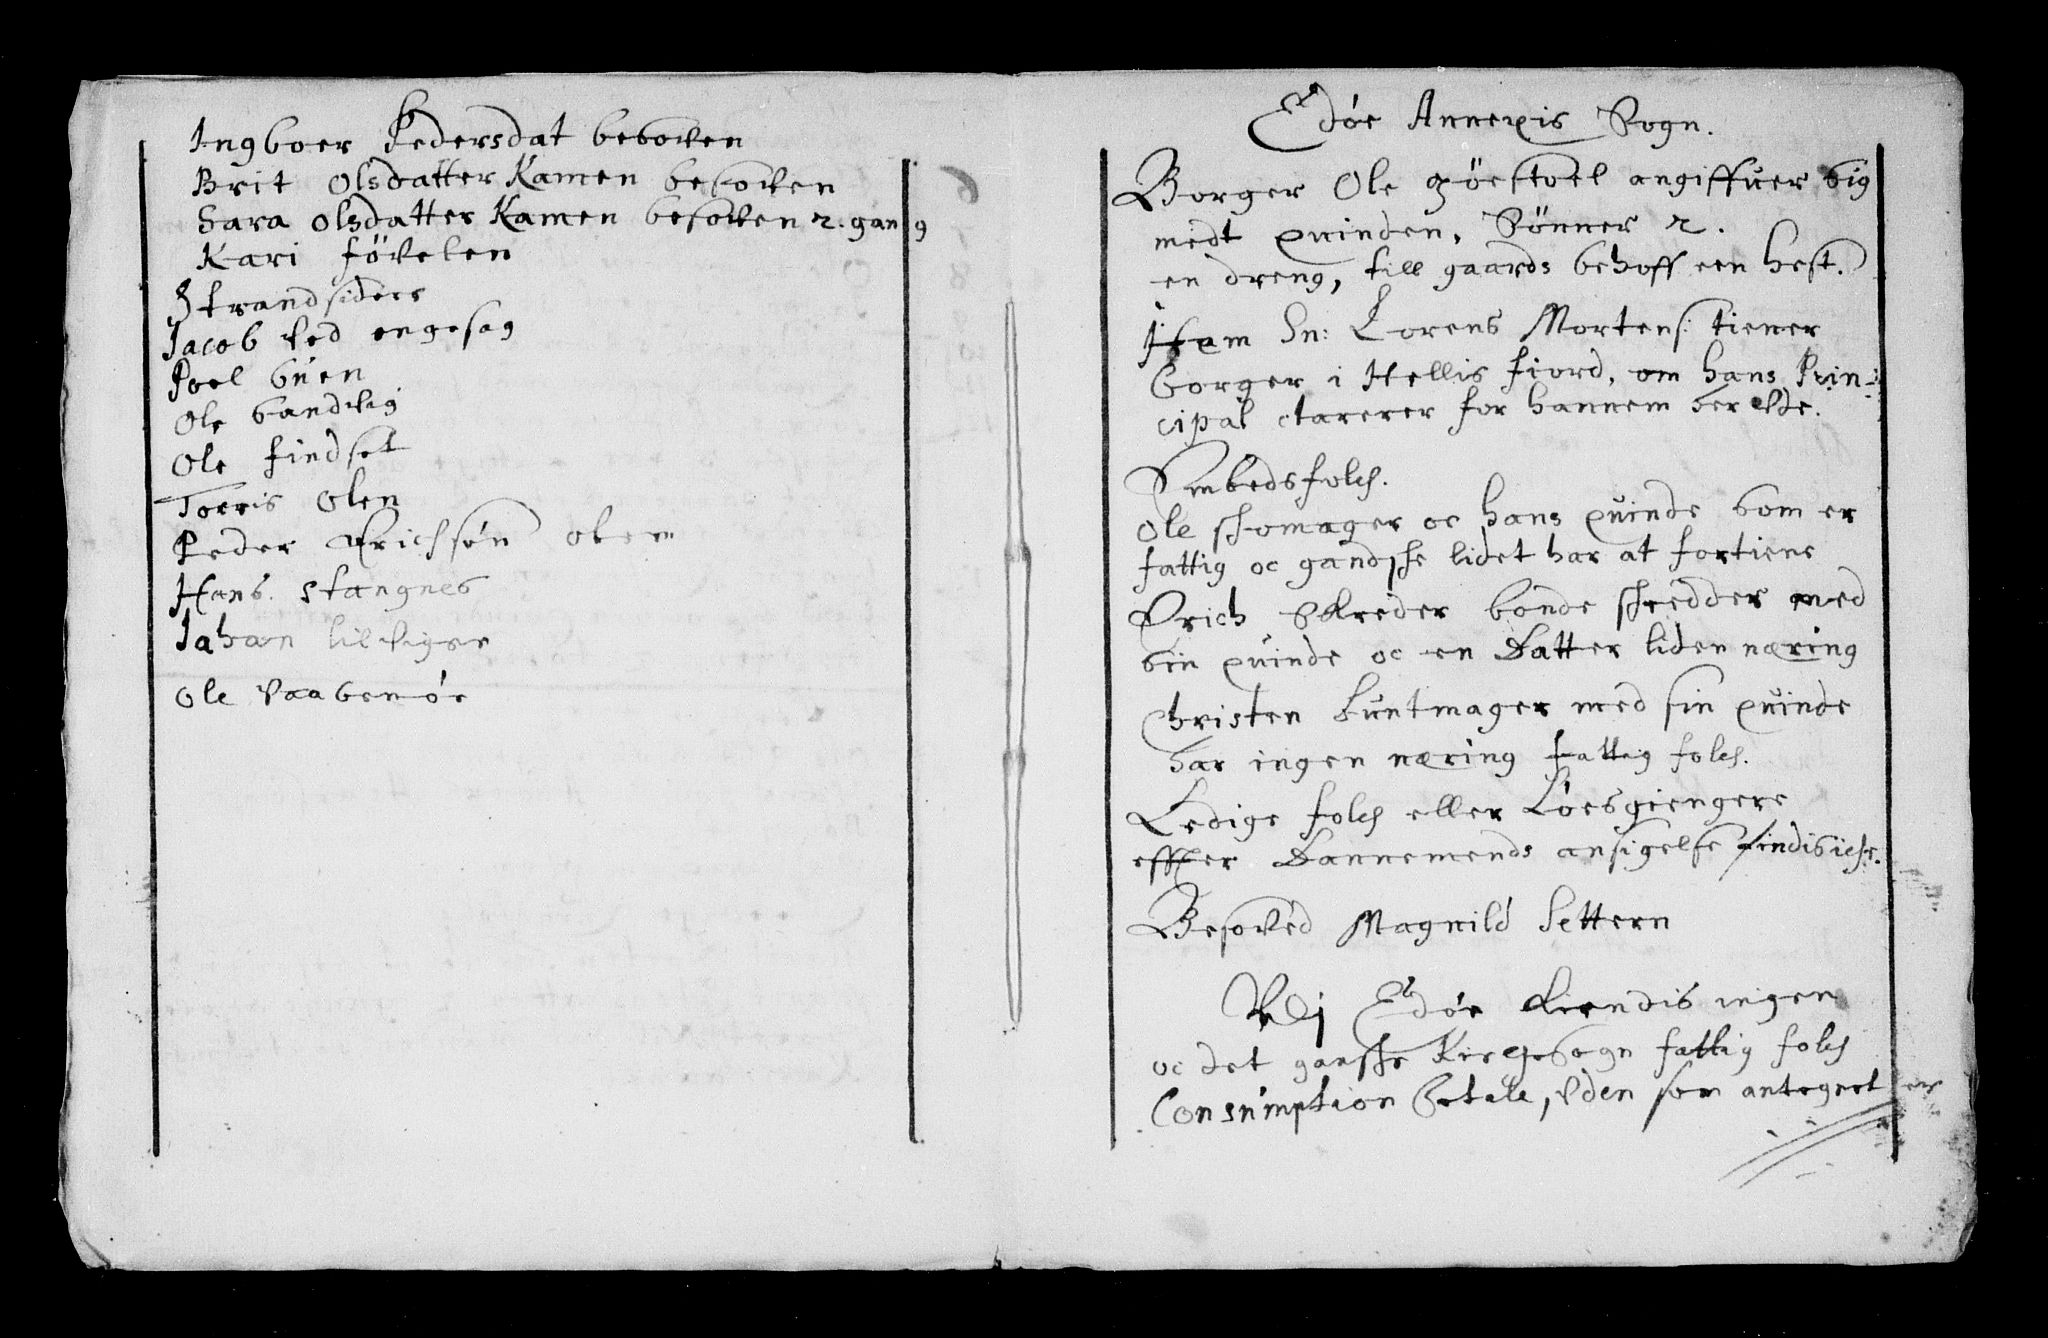 Ingboer Pedersdat besoven
Brit Olsdatter Kamen besoven
Sara Olsdatter Kamen besoven 2. gang
Kari Føvelen
Strandsiders
Jacob Ved engesag
Poel buen
Ole bandvig
Ole findset
Torris Olen
Peder Erichsøn olem
Hans stangnes
Jahan lilvigen
Ole Vaabenøe
Edøe Annexis Sogn.
Borger Ole giøestoel angiffuer sig
medt quinden, Sønner 2.
en dreng, till gaards behoff een hest.
Item Sn: Lorens Mortens: tiener
borger i Hellis fiord, om hans Prin-
cipal clarerer for hannem her vde.
Embedsfolch.
Ole schomager oc hans quinde som er
fattig oc gandsche lidet har at fortiene
Erich Skreder bonde schredder med
sin quinde oc en Datter liden næring
Christen Buntmager med sin quinde
har ingen næring fattig folch.
Ledige folch eller Løesgiengere
effter Dannemends ansigelse findis iche.
Besoved Magnild Settern
Udj Edøe kiendis ingen
oc det gansche Kirchesogn fattig folch
Consumption betale, vden som antegnet er